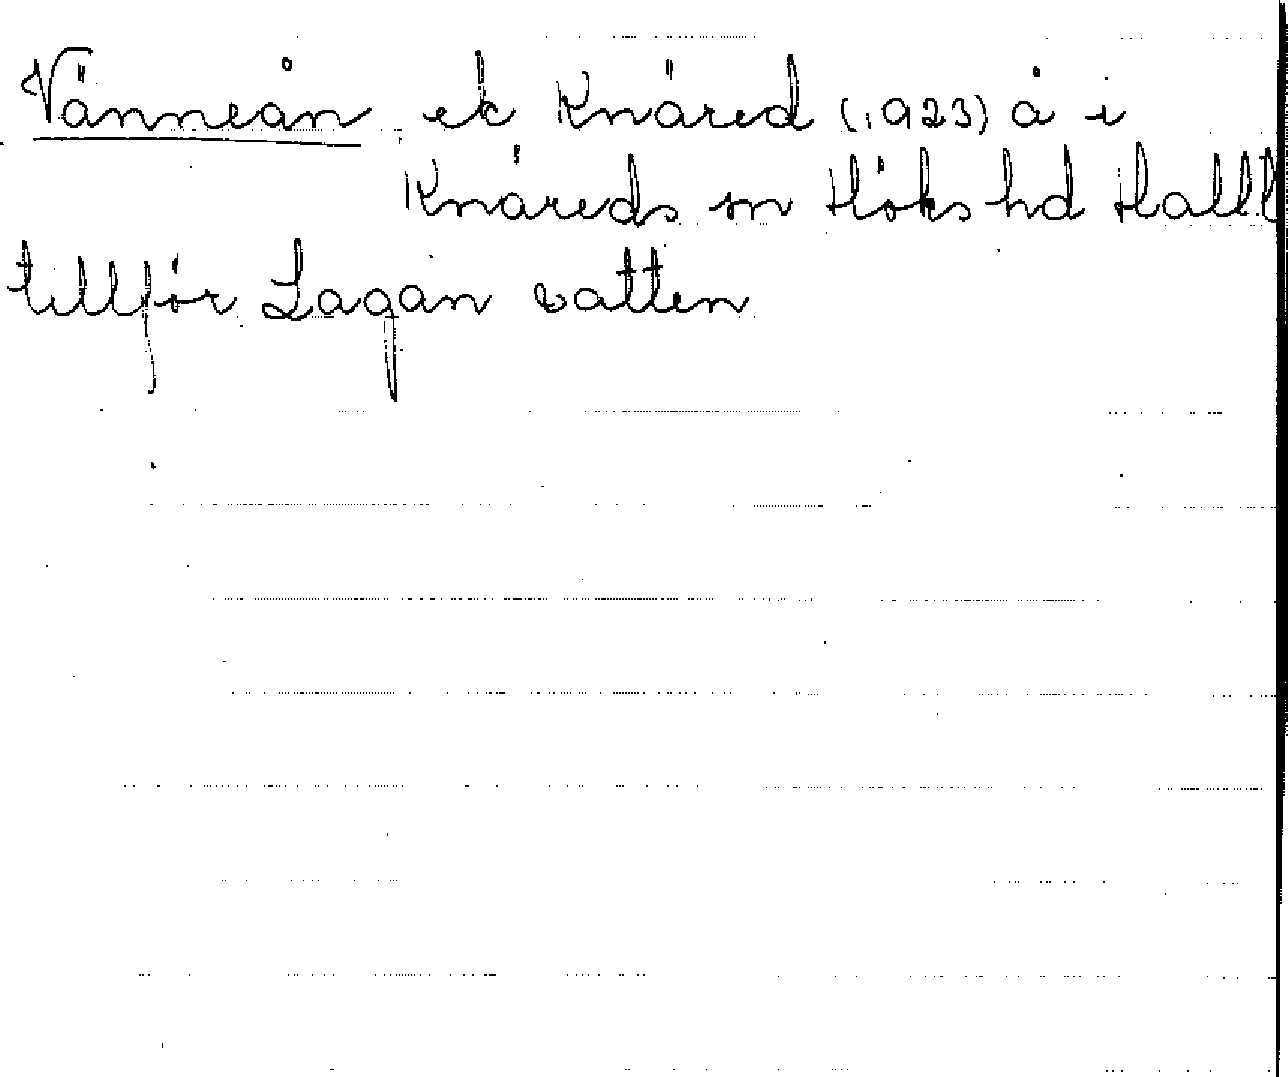 Vänneån ek Knäred (1923) å i
Knäreds sn Höks hd Halll
tillför Lagan vatten